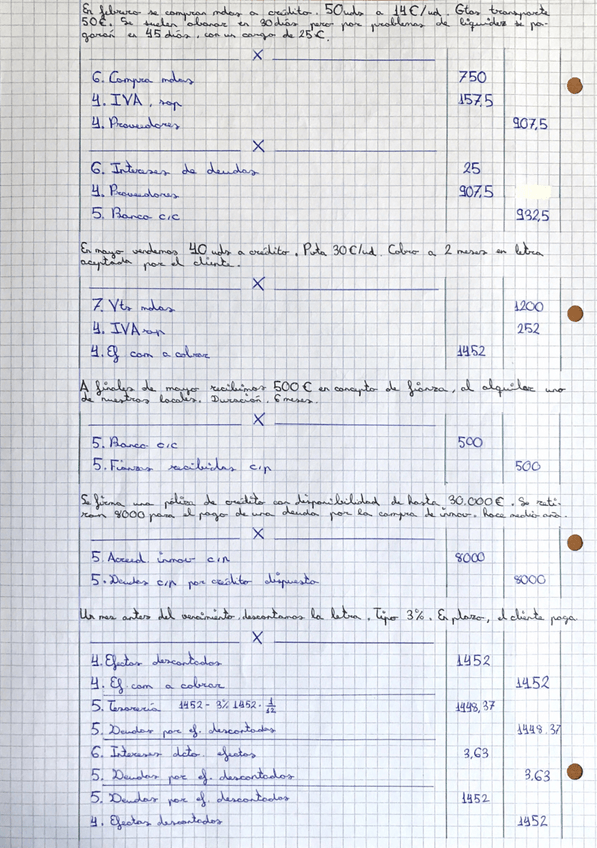 En febrero se compran mdas a crédito. 50 uds a 14€/ud. Gtos transporte
50€. Se suelen abonar en 30 días pero por problemas de liquidez se pa-
garán en 45 días, con un cargo de 25€.
X
6. Compra mdas 750
4. IVA sop 157,5
4. Proveedores 907,5
X
6. Intereses de deudas 25
4. Proveedores 907,5
5. Banco c/c 932,5
En mayo vendemos 40 uds a crédito. Pvta 30€/ud. Cobro a 2 meses en letra
aceptada por el cliente.
X
7. Vts mdas 1200
4. IVA rep 252
4. Ef com a cobrar 1452
A finales de mayo recibimos 500€ en concepto de fianza, al alquilar uno
de nuestros locales. Duración: 6 meses.
X
5. Banco c/c 500
5. Fianzas recibidas c/p 500
Se firma una póliza de crédito con disponibilidad de hasta 30.000€. Se reti-
ran 8000 para el pago de una deuda por la compra de inmov. hace medio año.
X
5. Acreed inmov c/p 8000
5. Deudas c/p por crédito dispuesto 8000
Un mes antes del vencimiento, descontamos la letra. Tipo 3%. En plazo, el cliente paga
X
4. Efectos descontados 1452
4. Ef. com a cobrar 1452
5. Tesorería 1452 - 3% 1452 · 1/12 1448,37
5. Deudas por ef. descontados 1448,37
6. Intereses dcto efectos 3,63
5. Deudas por ef. descontados 3,63
5. Deudas por ef. descontados 1452
4. Efectos descontados 1452